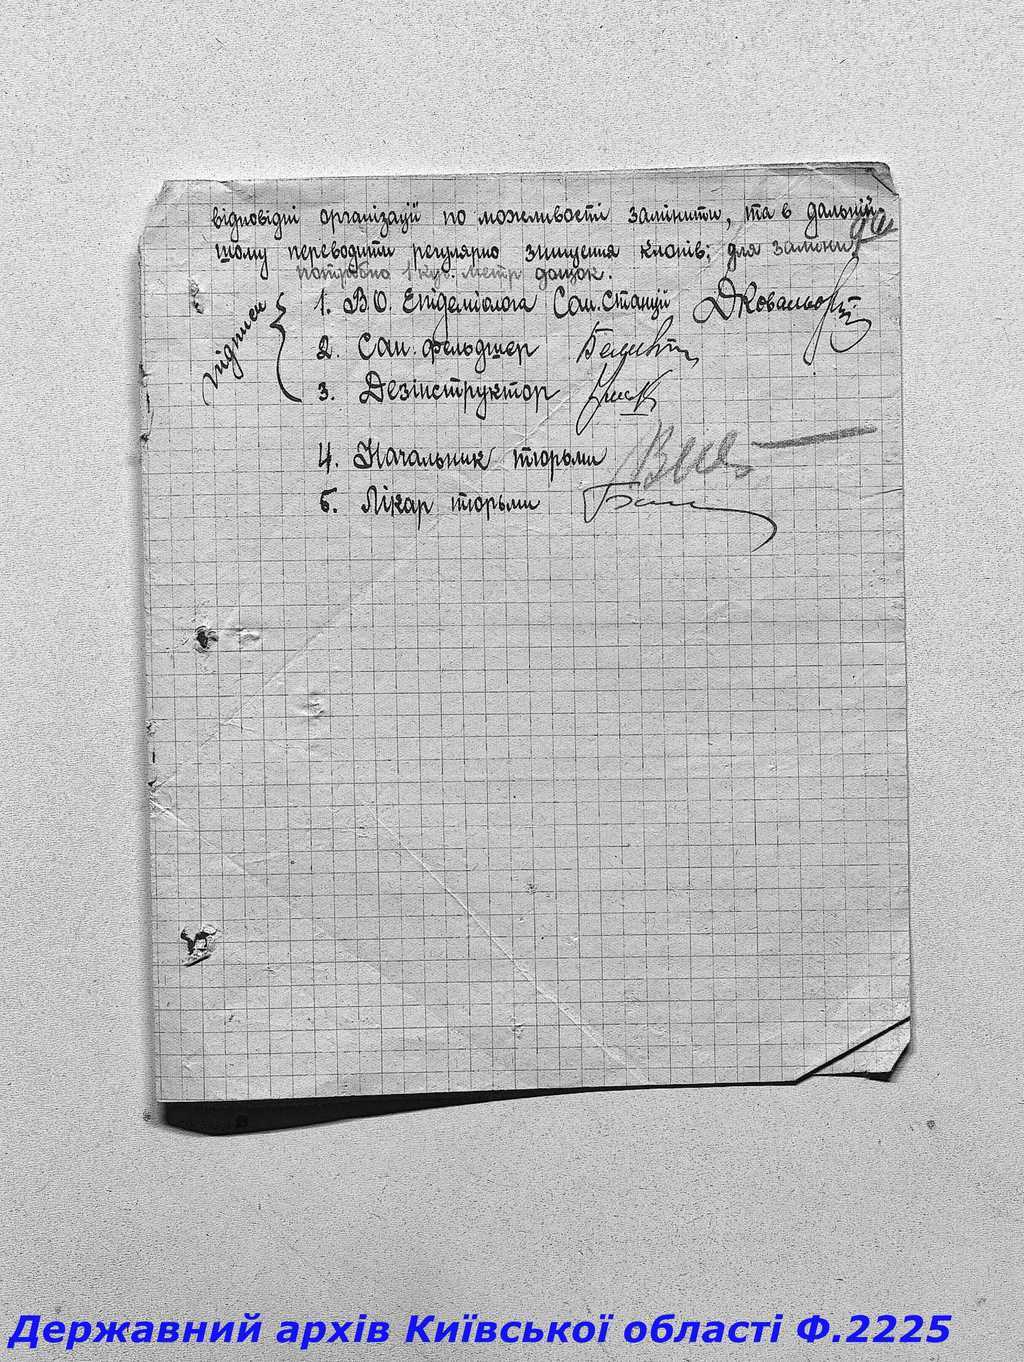 відповідні організації по можливості замінити, та в дальній
шому переводити регулярно знищення клопів; для заміни
потрабно 1 куб. метр дощок.
підписи
1. В.О. Епідеміолога Сан. Станції ДКовальо
2. Сан. фельдшер
3. Дезінструктор
4. Начальник тюрьми
5. Лікар тюрьми
Державний архів Київської області Ф.2225